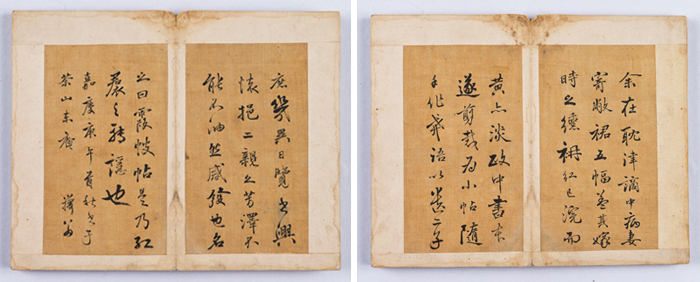 余在耽津謫中病妻
寄敝裙五幅蓋其嫁
時之纁袡紅已浣而
黃亦淡政中書本
遂剪裁爲小帖隨
手作戒語以遺二子
庶幾異日覽書興
懷挹二親之芳澤不
能不油然感發也名
之曰霞帔帖是乃紅
裠之轉讔也
嘉慶庚午首秋書于
茶山東菴 蘀翁